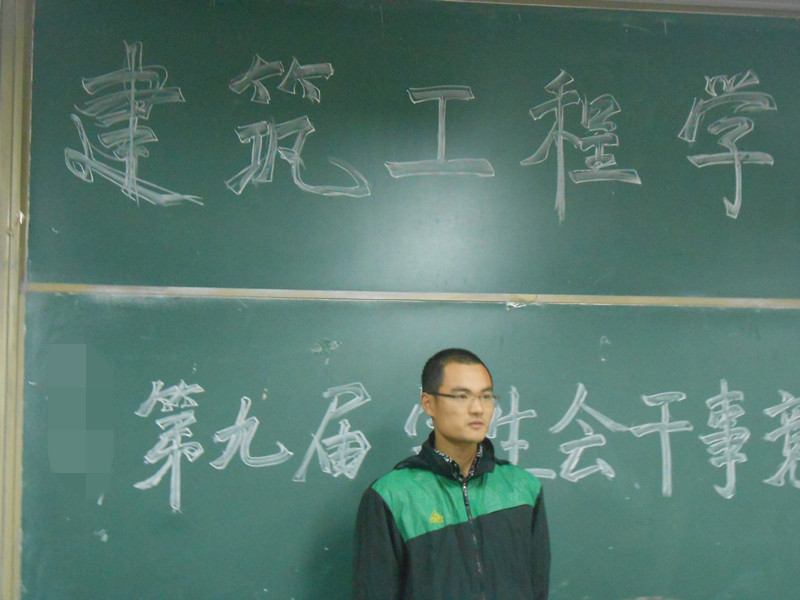 建筑工程学
第九届学生会干事竞